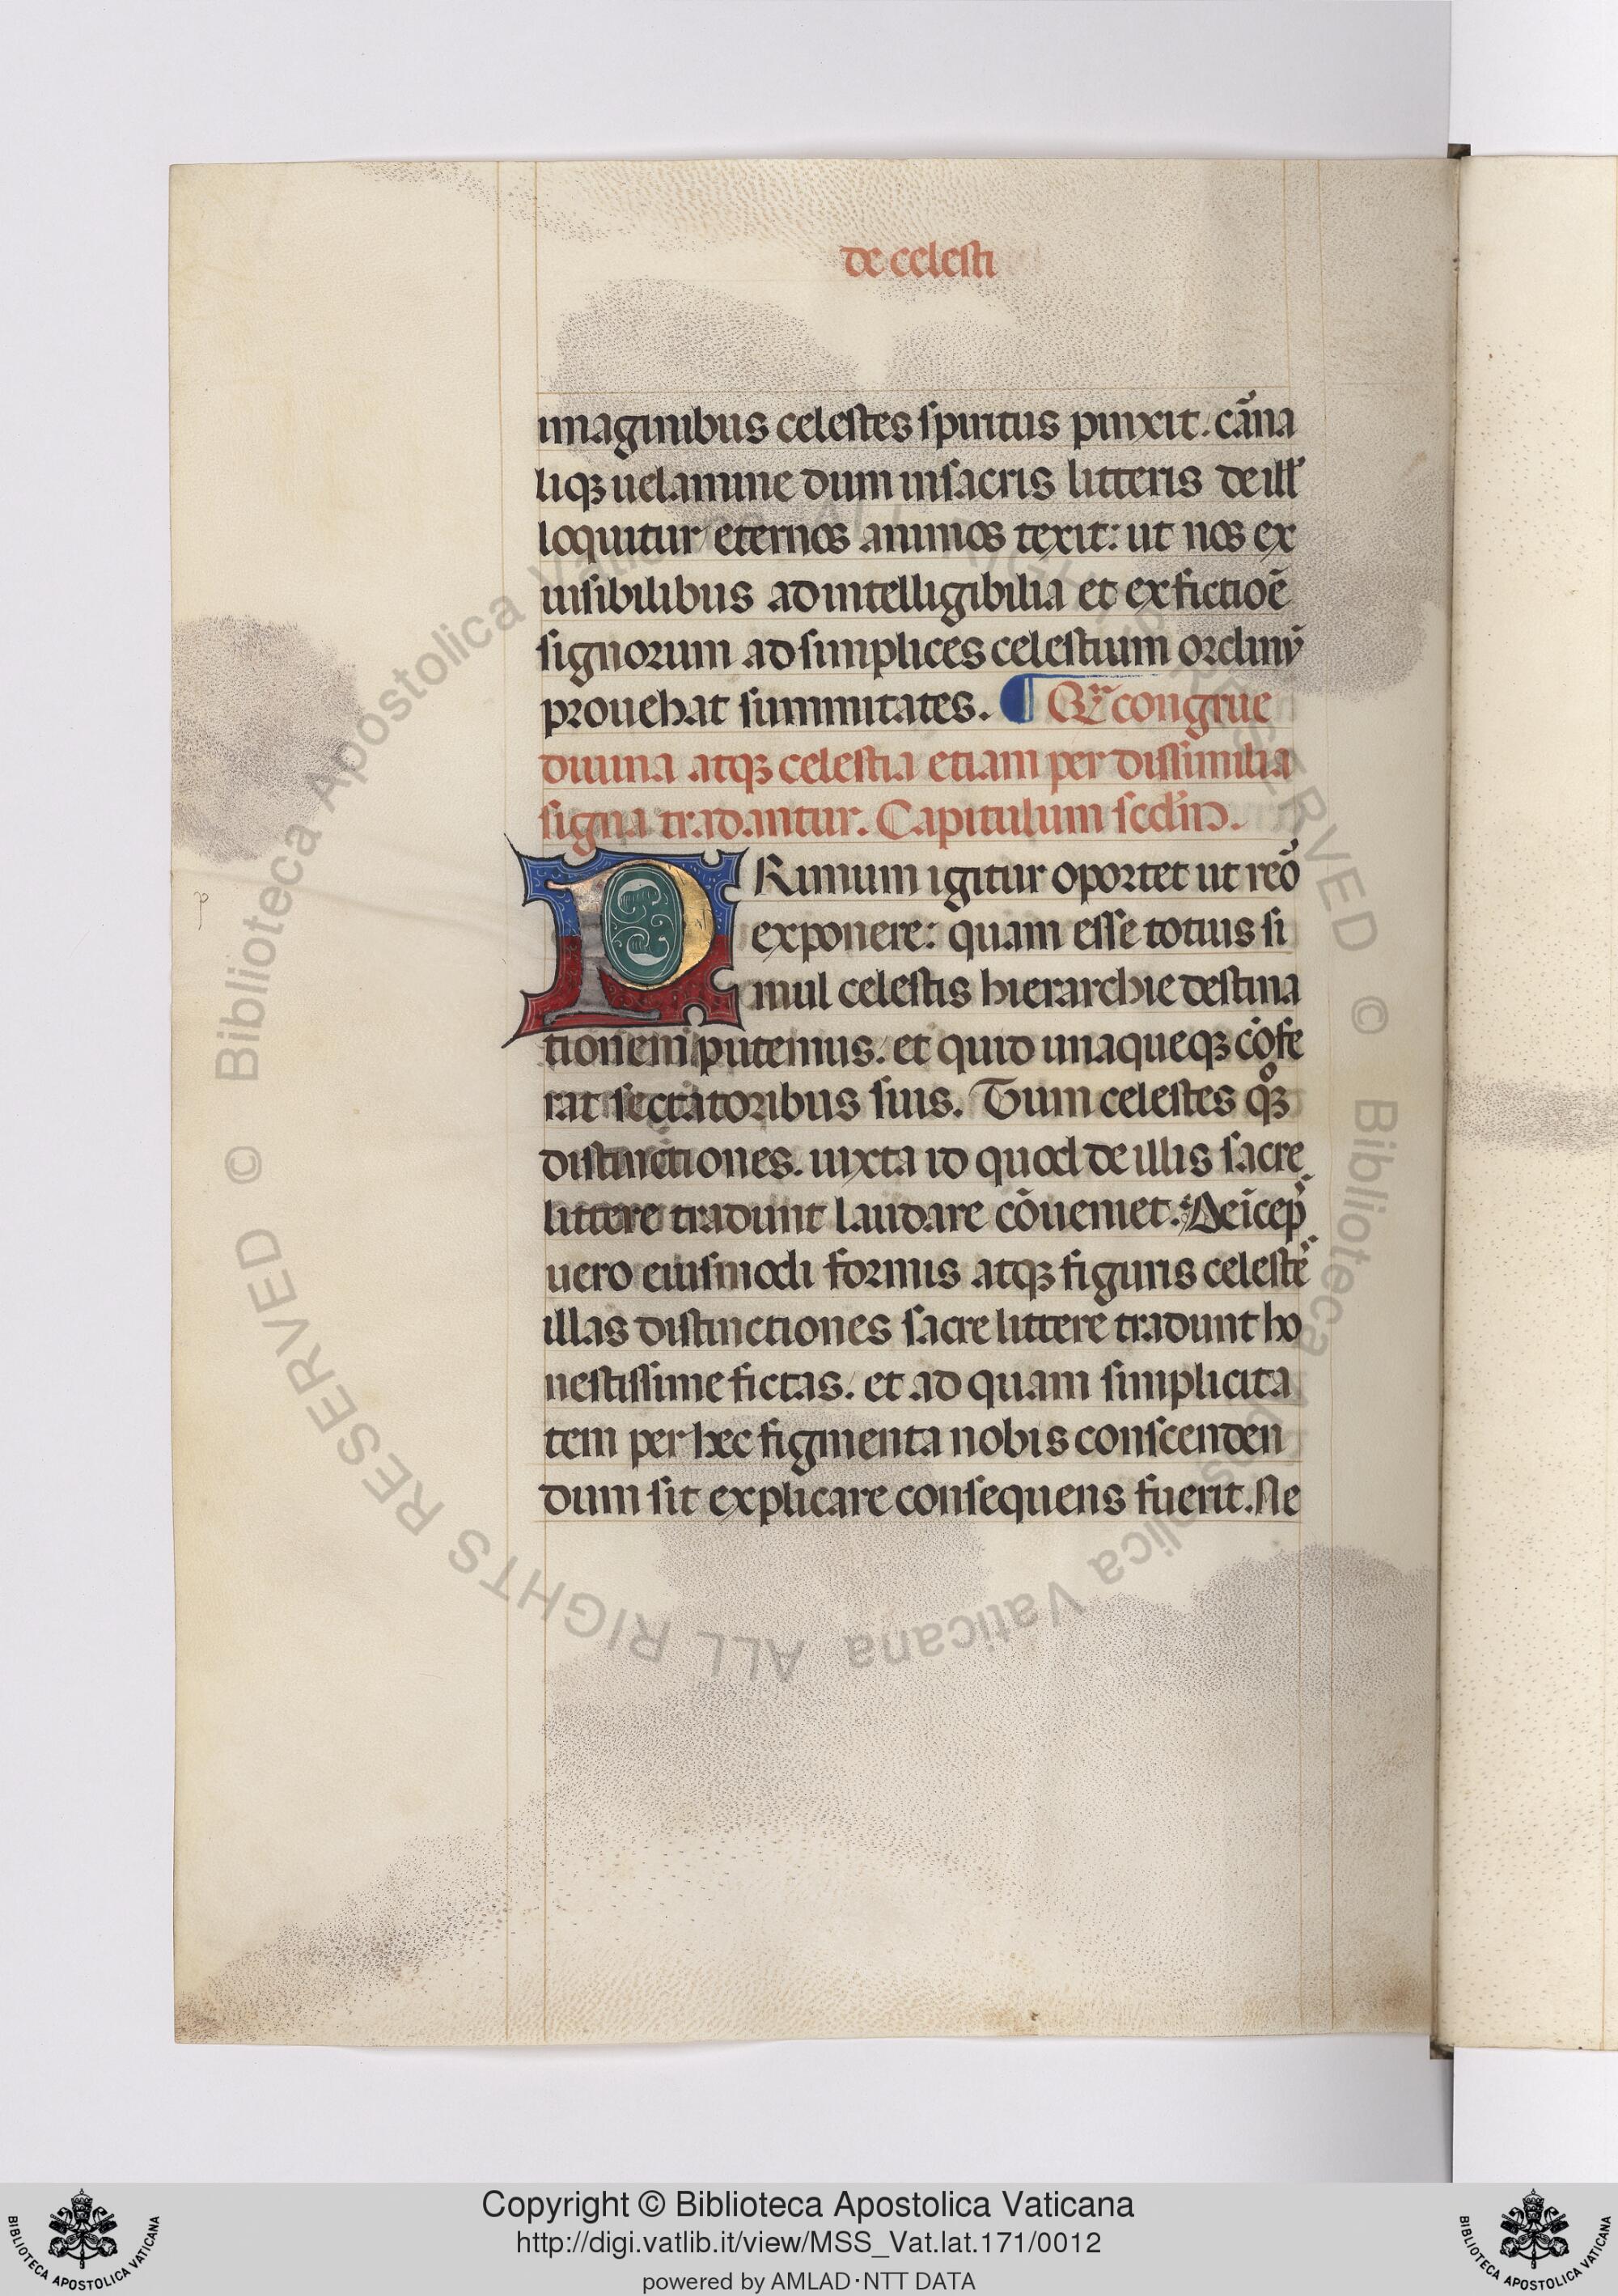 de celesti
imaginibus celestes spiritus pinxit. cãna
liqꝫ uelamine dum in sacris litteris de ill'
loquitur eternos animos texit: ut nos ex
uisibilibus ad intelligibilia et ex fictioẽ
signorum ad simplices celestium ordinũ
prouehat summitates. ¶ Qr congrue
diuina atqꝫ celestia etiam per dissimilia
signa tradantur. Capitulum scdm.
PRimum igitur oportet ut reõ
exponere: quam esse totius si
mul celestis hierarchie destina
tionem putemus. et quid unaqueqꝫ cõfe
rat sectatoribus suis. Tum celestes qꝫ
distinctiones. iuxta id quod de illis sacre
littere tradunt laudare cõueniet. Deĩcep
uero eiusmodi formis atqꝫ figuris celeste
illas distinctiones sacre littere tradunt ho
nestissime fictas. et ad quam simplicita
tem per hec figmenta nobis conscenden
dum sit explicare consequens fuerit. Ne
p
© Biblioteca Apostolica Vaticana ALL RIGHTS RESERVED © Biblioteca Apostolica Vaticana ALL RIGHTS RESERVED
Copyright © Biblioteca Apostolica Vaticana
http://digi.vatlib.it/view/MSS_Vat.lat.171/0012
powered by AMLAD·NTT DATA
BIBLIOTECA APOSTOLICA VATICANA
BIBLIOTECA APOSTOLICA VATICANA